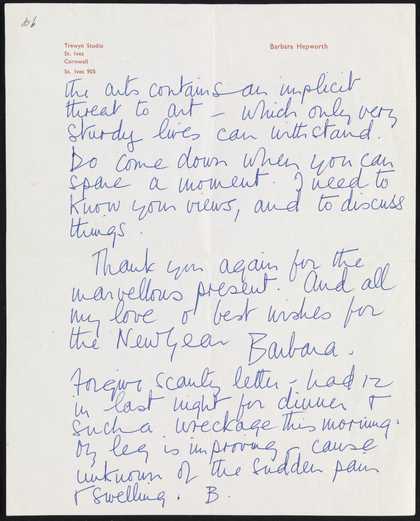 Trewyn Studio
St. Ives
Cornwall
St. Ives 905
Barbara Hepworth
the arts contains an implicit
threat to art – which only very
sturdy lives can withstand.
Do come down when you can
spare a moment. I need to
know your views, and to discuss
things.
Thank you again for the
marvellous present. And all
my love & best wishes for
the New Year Barbara.
Forgive scanty letter – had 12
in last night for dinner &
such a wreckage this morning.
My leg is improving – cause
unknown of the sudden pain
& swelling. B.